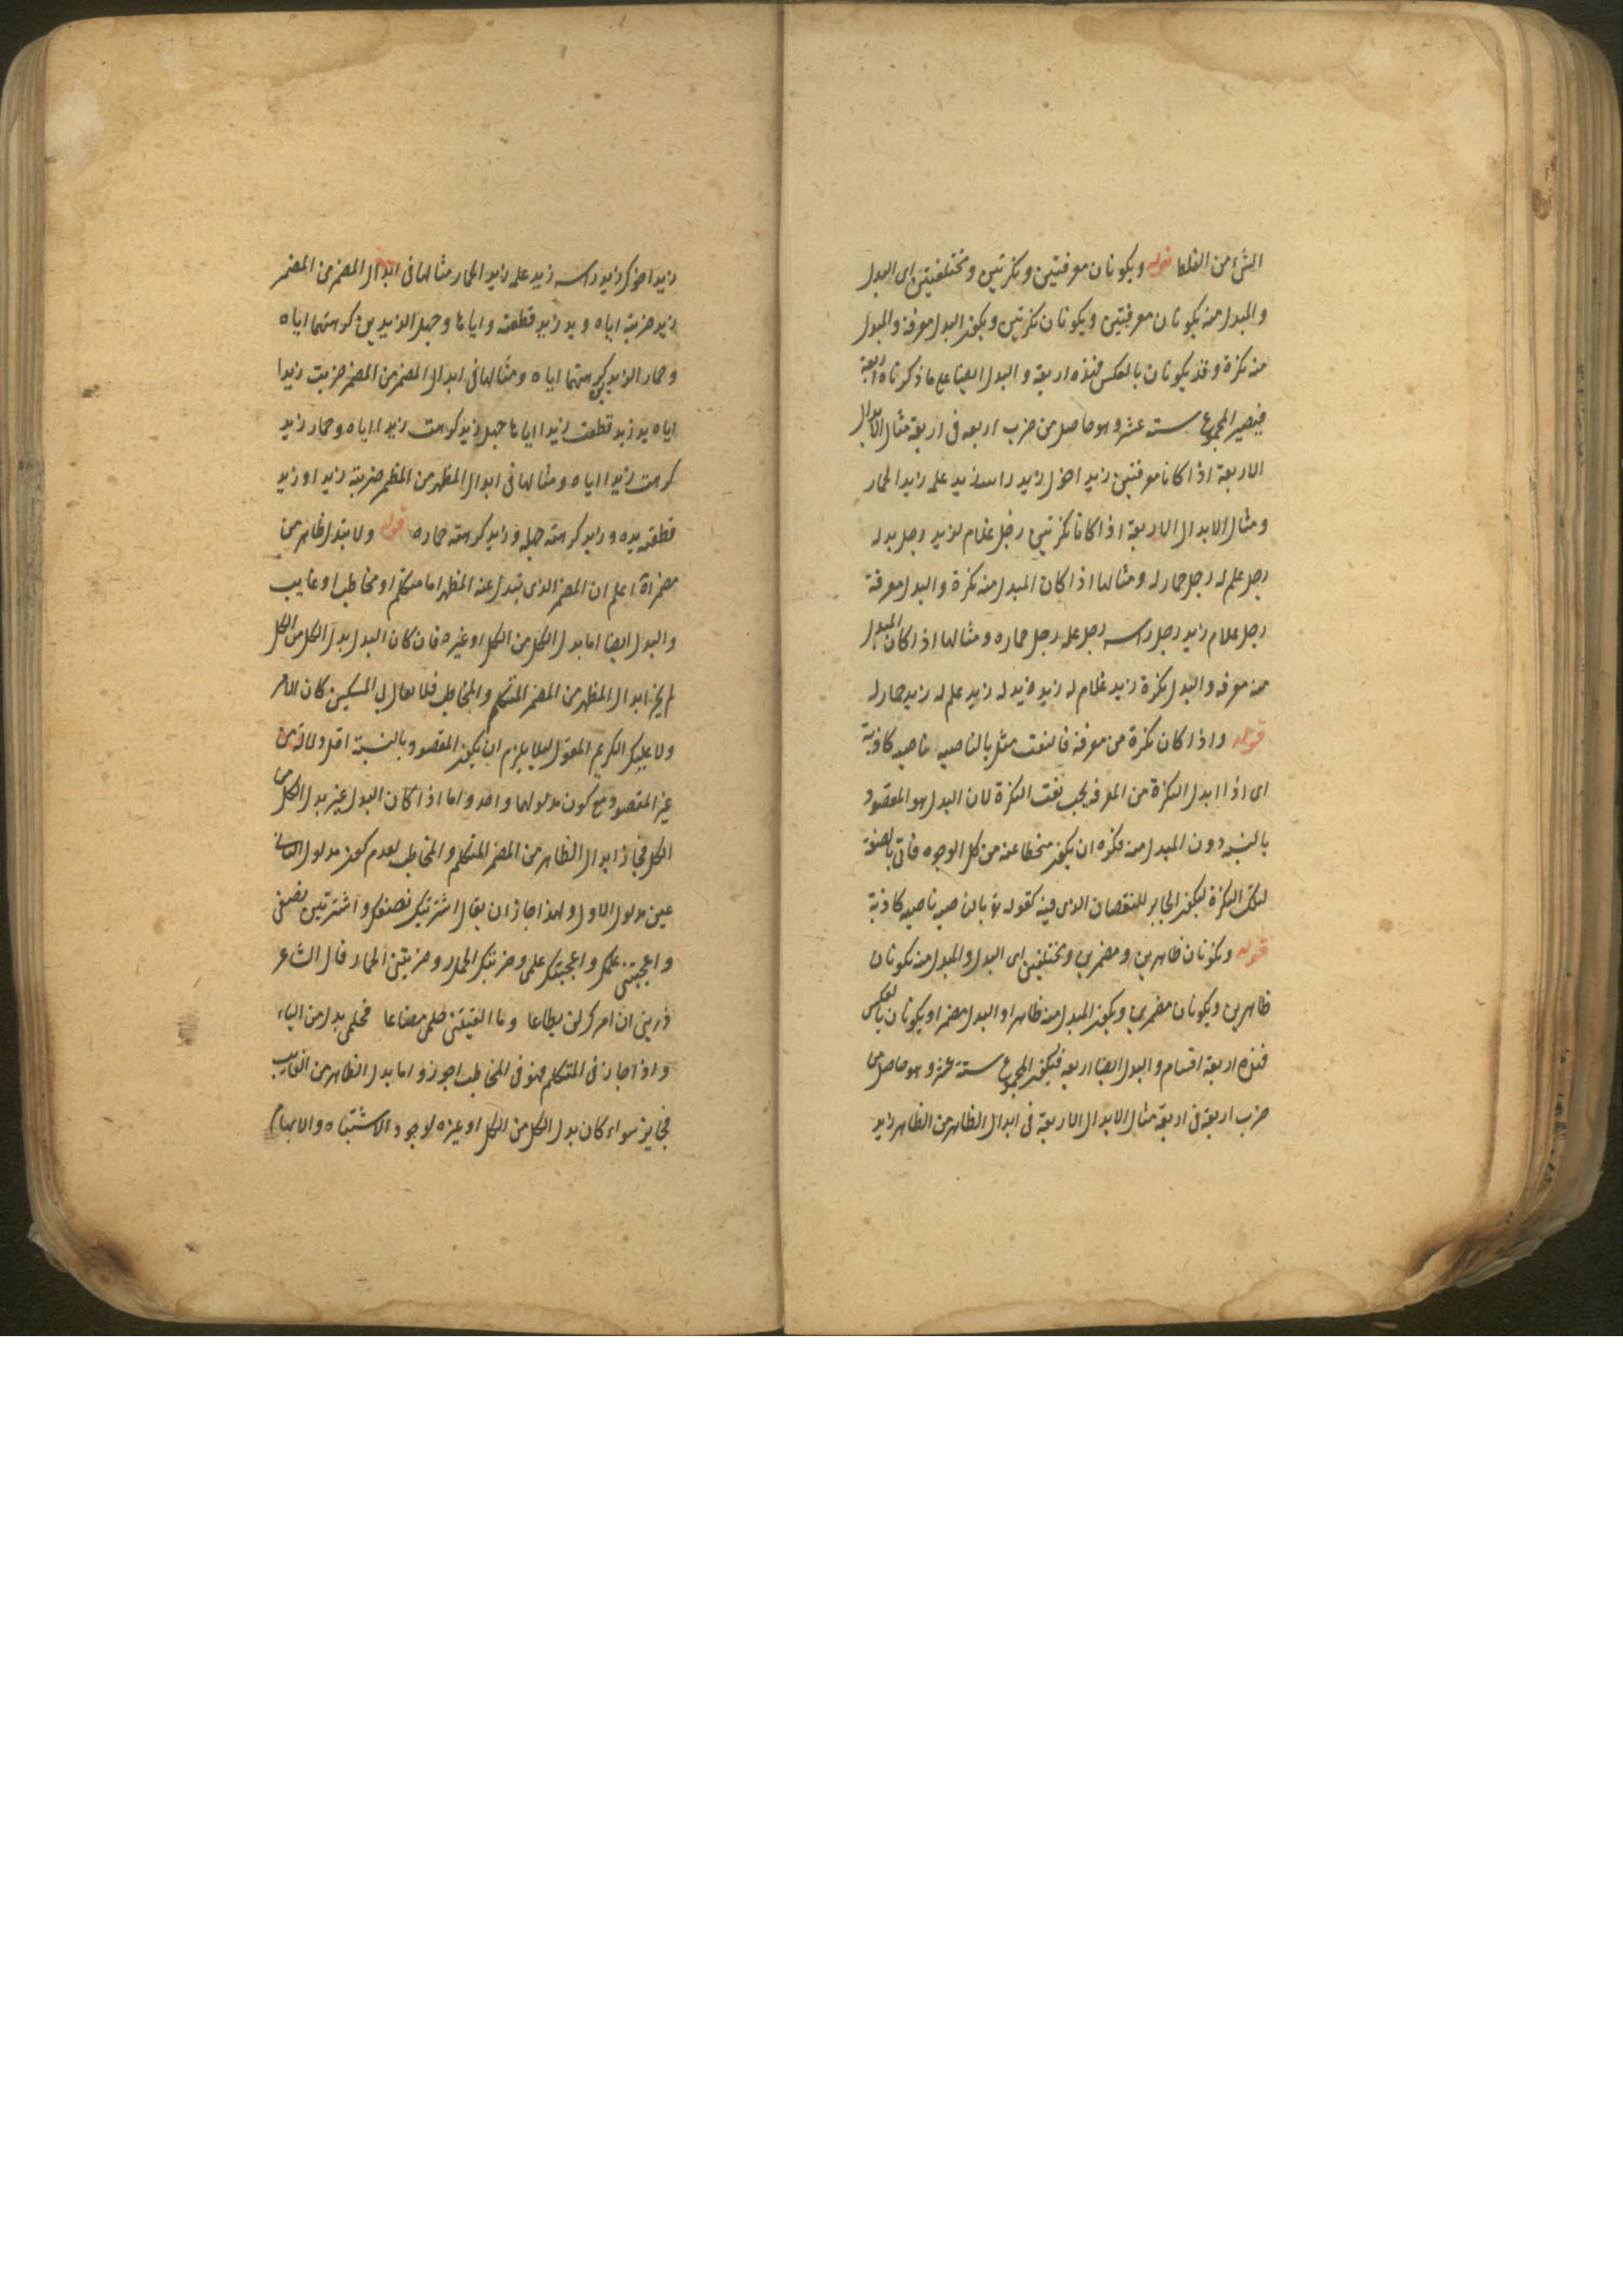 الشئ من الغلط قوله ويكونان معرفتين ونكرتين ومختلفتين اى البدل
والمبدل منه يكونان معرفتين ويكونان نكرتين ويكون البدل معرفة والمبدل
منه نكرة وقد يكونان بالعكس فهذه اربعة والبدل ايضا على ما ذكرناه اربعة
فيصير المجموع ستة عشر وهو حاصل من ضرب اربعه فى اربعة مثال الابدال
الاربعة اذا كانا معرفتين زيد اخوك زيد راسه زيد علمه زيد الحمار
ومثال الابدال الاربعة اذا كانا نكرتين رجل غلام لزيد رجل يد له
رجل علم له رجل حمار له ومثالها اذا كان المبدل منه نكرة والبدل معرفة
رجل غلام زيد رجل راسه رجل علمه رجل حماره ومثالها اذا كان المبدل
منه معرفه والبدل نكرة زيد غلام له زيد يد له زيد علم له زيد حمار له
قوله واذا كان نكرة من معرفة فالنعت مثل بالناصيه ناصيه كاذبة
اى اذا ابدل النكرة من المعرفه يجب نعت النكرة لان البدل هو المقصود
بالنسبه دون المبدل منه فكره ان يكون منحطا عنه من كل الوجوه فاتى بالصفة
لتلك النكرة ليكون الجابر للنقصان الذى فيه كقوله تع بالناصيه ناصيه كاذبة
قوله ويكونان ظاهرين ومضمرين ومختلفين اى البدل والمبدل منه يكونان
ظاهرين ويكونان مضمرين ويكون المبدل منه ظاهرا والبدل مضمرا ويكونان بالعكس
فهذه اربعة اقسام والبدل ايضا اربعه فيكون المجموع ستة عشر وهو حاصل من
ضرب اربعة فى اربعة مثال الابدال الاربعة فى ابدال الظاهر من الظاهر زيد
زيد اخوك زيد راسه زيد علمه زيد الحمار مثالها فى ابدال المضمر من المضمر
زيد ضربته اياه ويد زيد قطعته واياها وجهل الزيدين كرهتهما اياه
وحمار الزيدين كرهتهما اياه ومثالها فى ابدال المضمر من المظهر ضربت زيدا
اياه يد زيد قطعت زيدا اياها جهل زيد كرهت زيدا اياه وحمار زيد
كرهت زيدا اياه ومثالها فى ابدال المظهر من المضمر ضربته زيدا وزيد
قطعته يده وزيد كرهته جهله وزيد كرهته حماره قوله ولا يبدل ظاهر من
مضمر اه اعلم ان المضمر الذى يبدل عنه المظهر اما متكلم او مخاطب او غايب
والبدل ايضا اما بدل الكل من الكل او غيره فان كان البدل بدل الكل من الكل
لم يجز ابدال المظهر من المضمر المتكلم والمخاطب فلا يقال بى المسكين كان الامر
ولا عليك الكريم المعول لئلا يلزم ان يكون المقصود بالنسبة اقل دلالة من
غير المقصود مع كون مدلولهما واحد واما اذا كان البدل غير بدل الكل من
الكل فجاز ابدال الظاهر من المضمر المتكلم والمخاطب لعدم كون مدلول الثانى
عين مدلول الاول ولهذا جاز ان يقال اشتريتك نصفك واشتريتنى نصفى
واعجبتنى علمك واعجبتك علمى وضربتك الحمار وضربتنى الحمار قال الشاعر
ذرينى ان امرك لن يطاعا وما الفيتنى حلمى مضاعا فحلمى بدل من الياء
واذا جاز فى المتكلم فهو فى المخاطب اجوز واما بدل الظاهر من الغايب
فجايز سواء كان بدل الكل من الكل او غيره لوجود الاشتباه والابهام